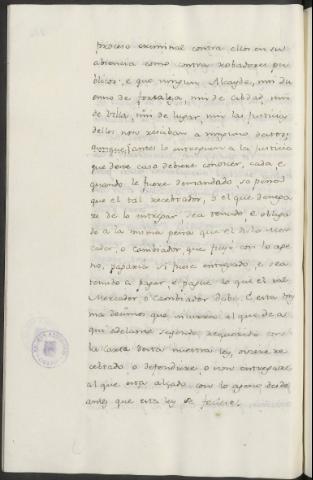 proceso criminal contra ellos en su
absencia como contra robadores pu
blicos: e que ningun Alcayde, nin du
enno de fortalesa, nin de cibdad, nin
de Villa, nin de lugar, nin las Justicias
dellos non reciban a ninguno destos;
antes lo entreguen a la Justicia
que deve caso debiere conocer, cada, e
quando le fuere demandado so pena
que el tal recebtador, o el que denega
re de lo entregar, sea tenudo, e obliga
do a la misma pena que el dicho Mer
cador, o Cambiador, que fuyó con lo age
no, pagaria si fuese entregado, e sea
tenudo a pagar, e pague lo que el tal
Mercador o Cambiador debe. E esta
ma decimos que incurra al que de a
qui adelante seyendo requerido con
la Carta desta nuestra ley, oviere re
cebtado o defendiere o non entregare
al que esta alzado con lo ageno desde
antes que esta ley se feciese.